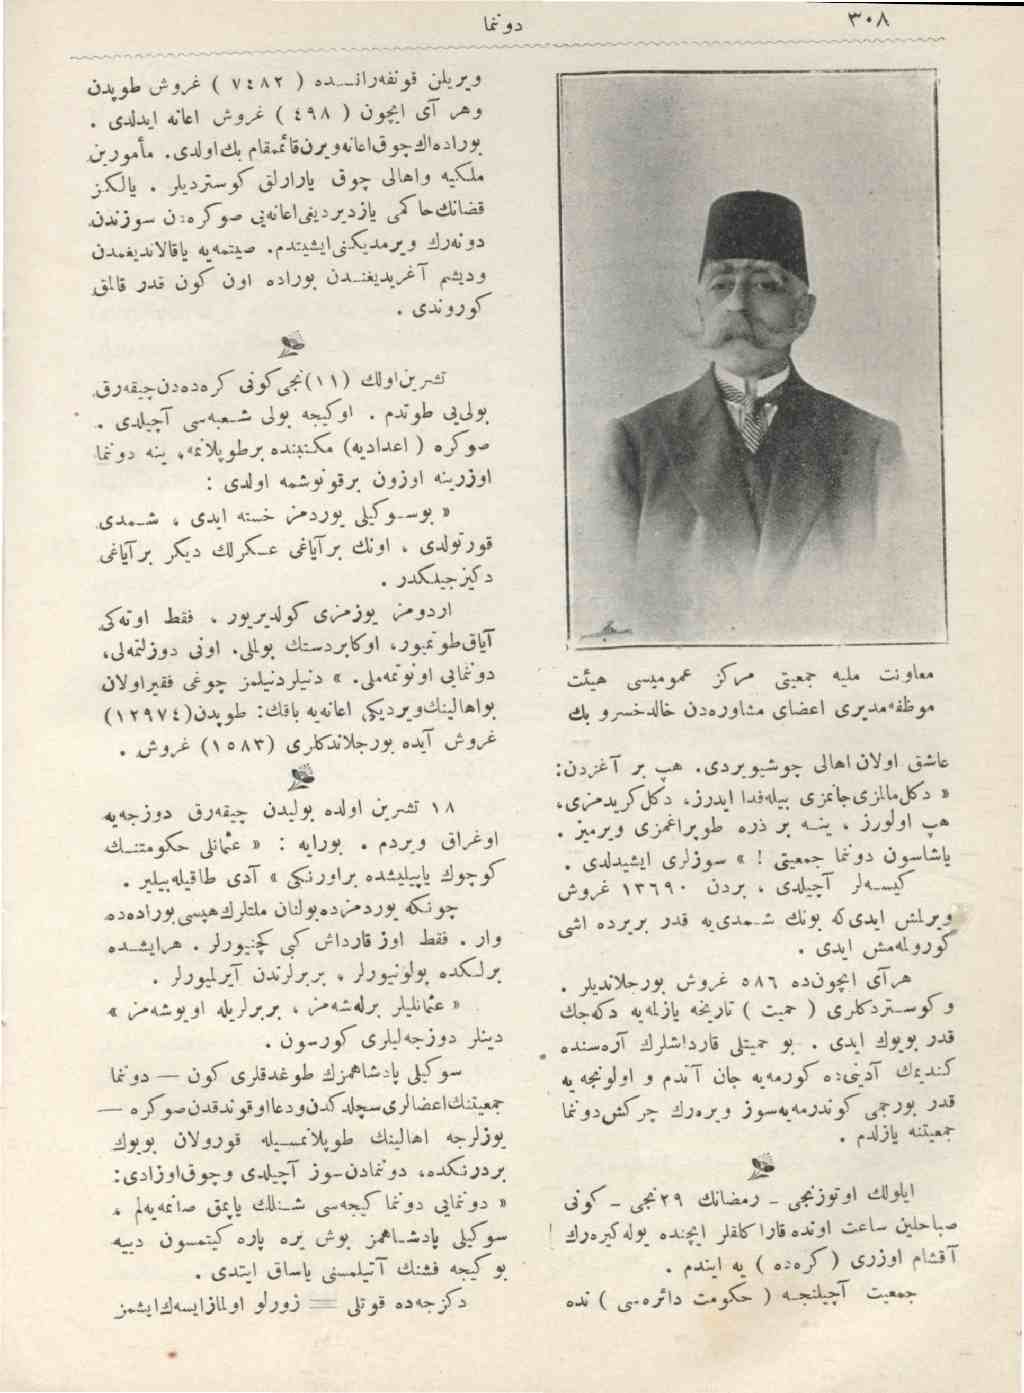 ٣٠٨
دونما
معاونت مليه جمعيتى مركز عموميسى هيئت
موظفه مديرى اعضاى مشاوره‌دن خالد خسرو بك
عاشق اولان اهالى جوشيويردى. هپ بر آغزدن:
« دكل مالمزى جانمزى بيله فدا ايدرز، دكل كريدمزى،
هپ اولورز ، ينه بر ذره طوپراغمزى ويرميز .
ياشاسون دونما جمعيتى ! » سوزلرى ايشيدلدى .
كيسه‌لر آچيلدى ، بردن ١٣٦٩٠ غروش
ويرلمش ايدى كه بونك شمدى‌يه قدر بريرده اشى
كورولمه‌مش ايدى .
هر آى ايچون ده ٥٨٦ غروش بورجلانديلر .
و كوستردكلرى ( حميت ) تاريخه يازلمه‌يه دكه‌جك
قدر بويوك ايدى . بو حميتلى قارداشلرك آره‌سنده
كنديمك آدينى ده كورمه‌يه جان آتدم و اولونجه‌يه
قدر بورجمى كوندرمه‌يه سوز ويره‌رك چركش دونما
جمعيتنه يازلدم .
ايلولك اوتوزنجى ــ رمضانك ٢٩نجى ــ كونى
صباحلين ساعت اونده قارا كلفلر ايچنده يوله كيره‌رك
آقشام اوزرى ( كره‌ده ) يه ايندم .
جمعيت آچيلنجه ( حكومت دائره‌سى ) نده
ويريلن قونفه‌رانسده ( ٧٤٨٢ ) غروش طوپدن
وهر آى ايچون ( ٤٩٨ ) غروش اعانه ايدلدى .
بوراده اك چوق اعانه ويرن قائممقام بك اولدى. مأمورين
ملكيه واهالى چوق يارارلق كوسترديلر . يالكز
قضانك حاكمى يازديرديغى اعانه‌يى صوكره‌دن سوزندن
دونه‌رك ويرمديكنى ايشيتدم. صيتمه‌يه ياقالانديغمدن
وديشم آغريديغندن بوراده اون كون قدر قالمق
كوروندى .
تشرين اولك (١١)نجى كونى كره‌ده‌دن چيقه‌رق
بولى‌يى طوتدم . اوكيجه بولى شعبه‌سى آچيلدى .
صوكره ( اعداديه ) مكتبنده برطوپلانمه، ينه دونما
اوزرينه اوزون برقونوشمه اولدى :
« بوسوكيلى يوردمز خسته ايدى ، شمدى
قورتولدى ، اونك برآياغى عسكرلك ديكر برآياغى
دكيزجيلكدر .
اردومز يوزمزى كولديريور ، فقط اوته‌كى
آياق طوتميور، اوكابردستك بوللى. اونى دوزلتمه‌لى،
دونمايى اونوتمه‌ملى. » دنيلردنيلمز چوغى فقير اولان
بواهالينك ويرديكى اعانه‌يه باقك: طوپدن(١٢٩٧٤)
غروش آيده بورجلاندكلرى (١٥٨٣) غروش .
١٨ تشرين اولده بوليدن چيقه‌رق دوزجه‌يه
اوغراق ويردم . بورايه : « عثمانلى حكومتنك
كوچوك ياپيليشده براورنكى » آدى طاقيله‌بيلير .
چونكه يوردمزده بولنان ملتلرك هپسى بوراده ده
وار . فقط اوز قارداش كبى كچنيورلر . هرايشده
برلكده بولونيورلر ، بربرلرندن آيرلميورلر .
« عثمانليلر برله‌شه‌مز ، بربرلريله اويوشه‌مز »
دينلر دوزجه‌ليلرى كورسون .
سوكيلى پادشاهمزك طوغدقلرى كون — دونما
جمعيتنك اعضالرى سچلدكدن ودعا اوقوندقدن صوكره —
يوزلرجه اهالينك طوپلانمسيله قورولان بويوك
بردرنكده، دونمادن سوز آچيلدى وچوق اوزادى:
« دونمايى دونما كيجه‌سى شنلك ياپمق صانمه‌يه‌لم ،
سوكيلى پادشاهمز بوش يره پاره كيتمسون دييه
بو كيجه فشنك آتيلمسنى ياساق ايتدى .
دكزجه‌ده قوتلى = زورلو اولمازايسه‌ك ايشمز